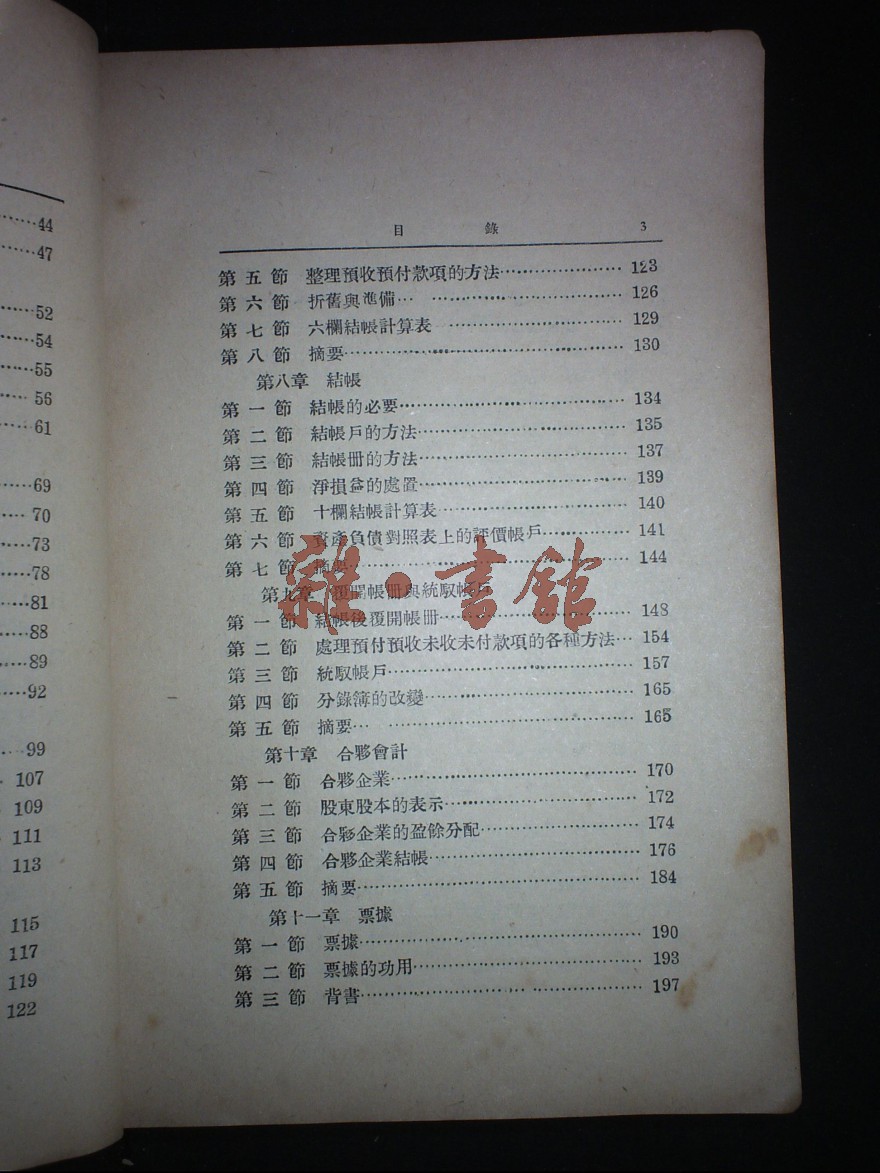 44
47
52
54
55
56
61
69
70
73
78
81
88
89
92
99
107
109
111
113
115
117
119
122
目 錄 3
第五節 整理預收預付款項的方法 123
第六節 折舊與準備 126
第七節 六欄結帳計算表 129
第八節 摘要 130
第八章 結帳
第一節 結帳的必要 134
第二節 結帳戶的方法 135
第三節 結帳冊的方法 137
第四節 淨損益的處置 139
第五節 十欄結帳計算表 140
第六節 資產負債對照表上的評價帳戶 141
第七節 摘要 144
第九章 覆開帳冊與統馭帳戶
第一節 結帳後覆開帳冊 148
第二節 處理預付預收未收未付款項的各種方法 154
第三節 統馭帳戶 157
第四節 分錄簿的改變 165
第五節 摘要 165
第十章 合夥會計
第一節 合夥企業 170
第二節 股東股本的表示 172
第三節 合夥企業的盈餘分配 174
第四節 合夥企業結帳 176
第五節 摘要 184
第十一章 票據
第一節 票據 190
第二節 票據的功用 193
第三節 背書 197
雜·書館